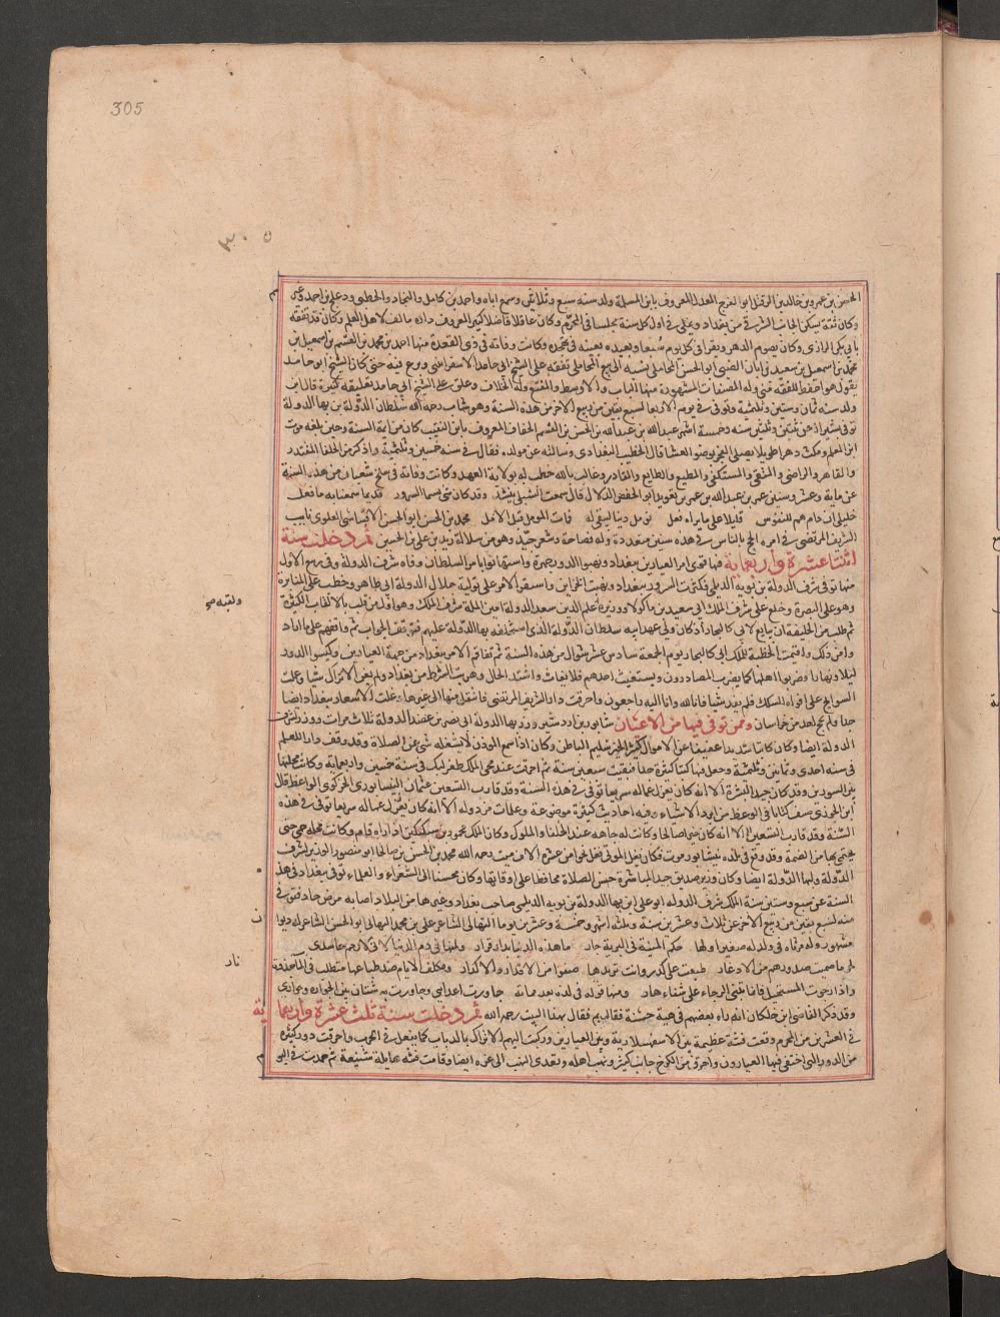 305
٣٠٥
الحسن بن عمرو بن خالد بن الرقيل ابو الفرج المعدل المعروف بابن المسلمة ولد سنة سبع وثلاثين وسمع اباه واحمد بن كامل والنجاد والخطبي ودعلج بن احمد وغير
وكان ثقة يسكن الجانب الشرقي من بغداد ويملي في اول كل سنة مجلسا في المحرم وكان عاقلا فاضلا كثير المعروف داره مالف لاهل العلم وكان قد تفقه
بابي بكر الرازي وكان يصوم الدهر ويقرا في كل يوم سبعا ويعيده بعينه في تهجده وكانت وفاته في ذي القعدة منها احمد بن محمد بن القسم بن اسمعيل بن
محمد بن اسمعيل بن سعيد بن ابان الضبي ابو الحسن المحاملي نسبة الى بيع المحامل تفقه على الشيخ ابي حامد الاسفرايني وبرع فيه حتى كان الشيخ ابو حامد
يقول هو احفظ للفقه مني وله المصنفات المشهورة منها اللباب والاوسط والمقنع وله الخلاف وعلق على الشيخ ابي حامد تعليقة كبيرة قال
ولد سنة ثمان وستين وثلثمئة وتوفي في يوم الاربعا لتسع بقين من ربيع الاخر من هذه السنة وهو شاب رحمه الله سلطان الدولة بن بها الدولة
توفي بشيراز عن ثنتين وثلثين سنة وخمسة اشهر عبيد الله بن عبد الله بن الحسين ابو القسم الخفاف المعروف بابن النقيب كان من ايمة السنة وحين بلغه موت
ابن المعلم ومكث دهرا طويلا يصلي الفجر بوضو العشا قال الخطيب البغدادي وسالته عن مولده فقال في سنة خمسين وثلثمئة واذكر من الخلفا المقتدر
والقاهر والراضي والمتقي والمستكفي والمطيع والطايع والقادر والغالب بالله خطب له بولاية العهد وكانت وفاته في سلخ شعبان من هذه السنة
عن ماية وعشر وسنين عمر بن عبد الله بن عمر بن تعويذ ابو الحفص الدلال قال سمعت الشبلي ينشد وقد كان شي يسما السرور قديما سمعنا به ما فعل
خليلي ان دام هم النفوس قليلا على ما يراه قتل يومل دينا لتبقى له فمات المومل قبل الامل محمد بن الحسن ابو الحسن الاقساسي العلوي نايب
الشريف المرتضى في امرة الحج بالناس في هذه سنين متعددة وله فصاحة وشعر جيد وهو من سلالة زيد بن علي بن الحسين ثم دخلت سنة
اثنتا عشرة واربعماية فيها قوي امر العيارين ببغداد ونهبوا الدور جهرة واستهانوا بامر السلطان وفاة شرف الدولة وفي ربيع الاول
منها توفي شرف الدولة بن بويه الديلمي فكثرت الشرور ببغداد ونهبت الخزاين واستقر الامر على تولية جلال الدولة ابي طاهر وخطب على المنابر
وهو على البصرة وخلع على شرف الملك ابي سعيد بن ماكولا ووزيره علم الدين سعد الدولة امين الملة شرف الملك وهو اول من لقب بالالقاب الكثيرة
ولقبه صح
ثم طلب من الخليفة ان يبايع لابي كاليجار اذ كان ولي عهد ابيه سلطان الدولة الذي استخلفه بها الدولة عليهم فتوقف في الجواب ثم وافقهم على ما اراد
وا من ذلك واقيمت الخطبة للملك ابي كاليجار يوم الجمعة سادس عشر شوال من هذه السنة ثم تفاقم الامر ببغداد من جهة العيارين وكبسوا الدور
ليلا ونهارا وضربوا اهلها كما يضرب المصادرون ويستغيث احدهم فلا يغاث واشتد الحال وهربت الشرط من بغداد ولم تغن الاتراك شيا وعملت
السرايج على افواه السكك فلم يفد شيا فانا لله وانا اليه راجعون واحرقت دار الشريف المرتضى فانتقل منها الى غيرها غلت الاسعار ببغداد ايضا
جدا ولم يحج احد من خراسان وممن توفي فيها من الاعيان سابور بن اردشير وزر لبها الدولة ابي نصر بن عضد الدولة ثلاث مرات ووزر لشرف
الدولة ايضا وكان كاتبا سديدا عفيفا عن الاموال كثير الخير سليم الباطن وكان اذا سمع الموذن لا يشغله شي عن الصلاة وقد وقف دارا للعلم
في سنة احدى وثمانين وثلثمئة وجعل فيها كتبا كثيرة جدا فبقيت سبعين سنة ثم احرقت عند مجي الملك طغرلبك في سنة خمسين واربعماية وكانت محلتها
بين السورين وقد كان جيد المباشرة الا انه كان يعزل عماله سريعا توفي في هذه السنة وقد قارب التسعين عثمان النيسابوري الخركوي الواعظ قال
ابن الجوزي صنف كتابا في الوعظ من ابرد الاشياء وفيه احاديث كثيرة موضوعة وكلمات مرذولة الا انه كان خيرا
السنة وقد قارب التسعين الا انه كان خيرا صالحا وكانت له وجاهة عند الخلفا والملوك وكان الملك محمود بن سبكتكين اذا راه قام وكانت محلته حمى
يحتمي بها من الظلمة وقد وقع في بلده نيسابور موت فكان يغسل الموتى فغسل نحوا من عشرة الاف ميت رحمه الله محمد بن الحسن بن صالحا ابو منصور الوزير لشرف
الدولة ولبها الدولة ايضا وكان وزير صدق جيد المباشرة حسن الصلاة محافظا على اوقاتها وكان محسنا الى الشعراء والعلماء توفي ببغداد في هذ
السنة عن سبع وسبعين سنة الملك شرف الدولة ابو علي ابن بها الدولة بن بويه الديلمي صاحب بغداد وغيرها من البلاد اصابه مرض حاد فتوفي
منه لتسع بقين من ربيع الاخر عن ثلاث وعشرين سنة وثلثة اشهر وخمسة وعشرين يوما التهامي الشاعر علي بن محمد التهامي ابو الحسن الشاعر له ديوا
ن
مشهور وله مرثاة في ولد له صغير اولها حكم المنية في البرية جار ما هذه الدنيا بدار قرار ومنها في ذم الدنيا اني لارحم حاسدي
لحر ما ضمت صدورهم من الاوغار طبعت على كدر وانت تريدها صفوا من الاقذار والاكدار ومكلف الايام ضد طباعها متطلب في الما جذوة
نار
واذا رجوت المستحيل فانما تبني الرجاء على شفاء هار ومنها قوله في ولده بعد مماته جاورت اعدائي وجاورت ربه شتان بين جواره وجواري
وقد ذكر القاضي ابن خلكان انه راه بعضهم في هيئة حسنة فقال بم فقال بهذا البيت رحمه الله ثم دخلت سنة ثلث عشرة واربعماية
في العشرين من المحرم وقعت فتنة عظيمة بين الاسفهسلارية وبين العيارين وركبت اليهم الاتراك بالدباب كما يفعل في الحرب واحرقت دور كثيرة
من الدور التي احتمى فيها العيارون واحرق من الكرخ جانب كبير ونهب اهله وتعدى النهب الى غيره ايضا وقامت فتنة هايلة شنيعة ثم خمدت في اليو